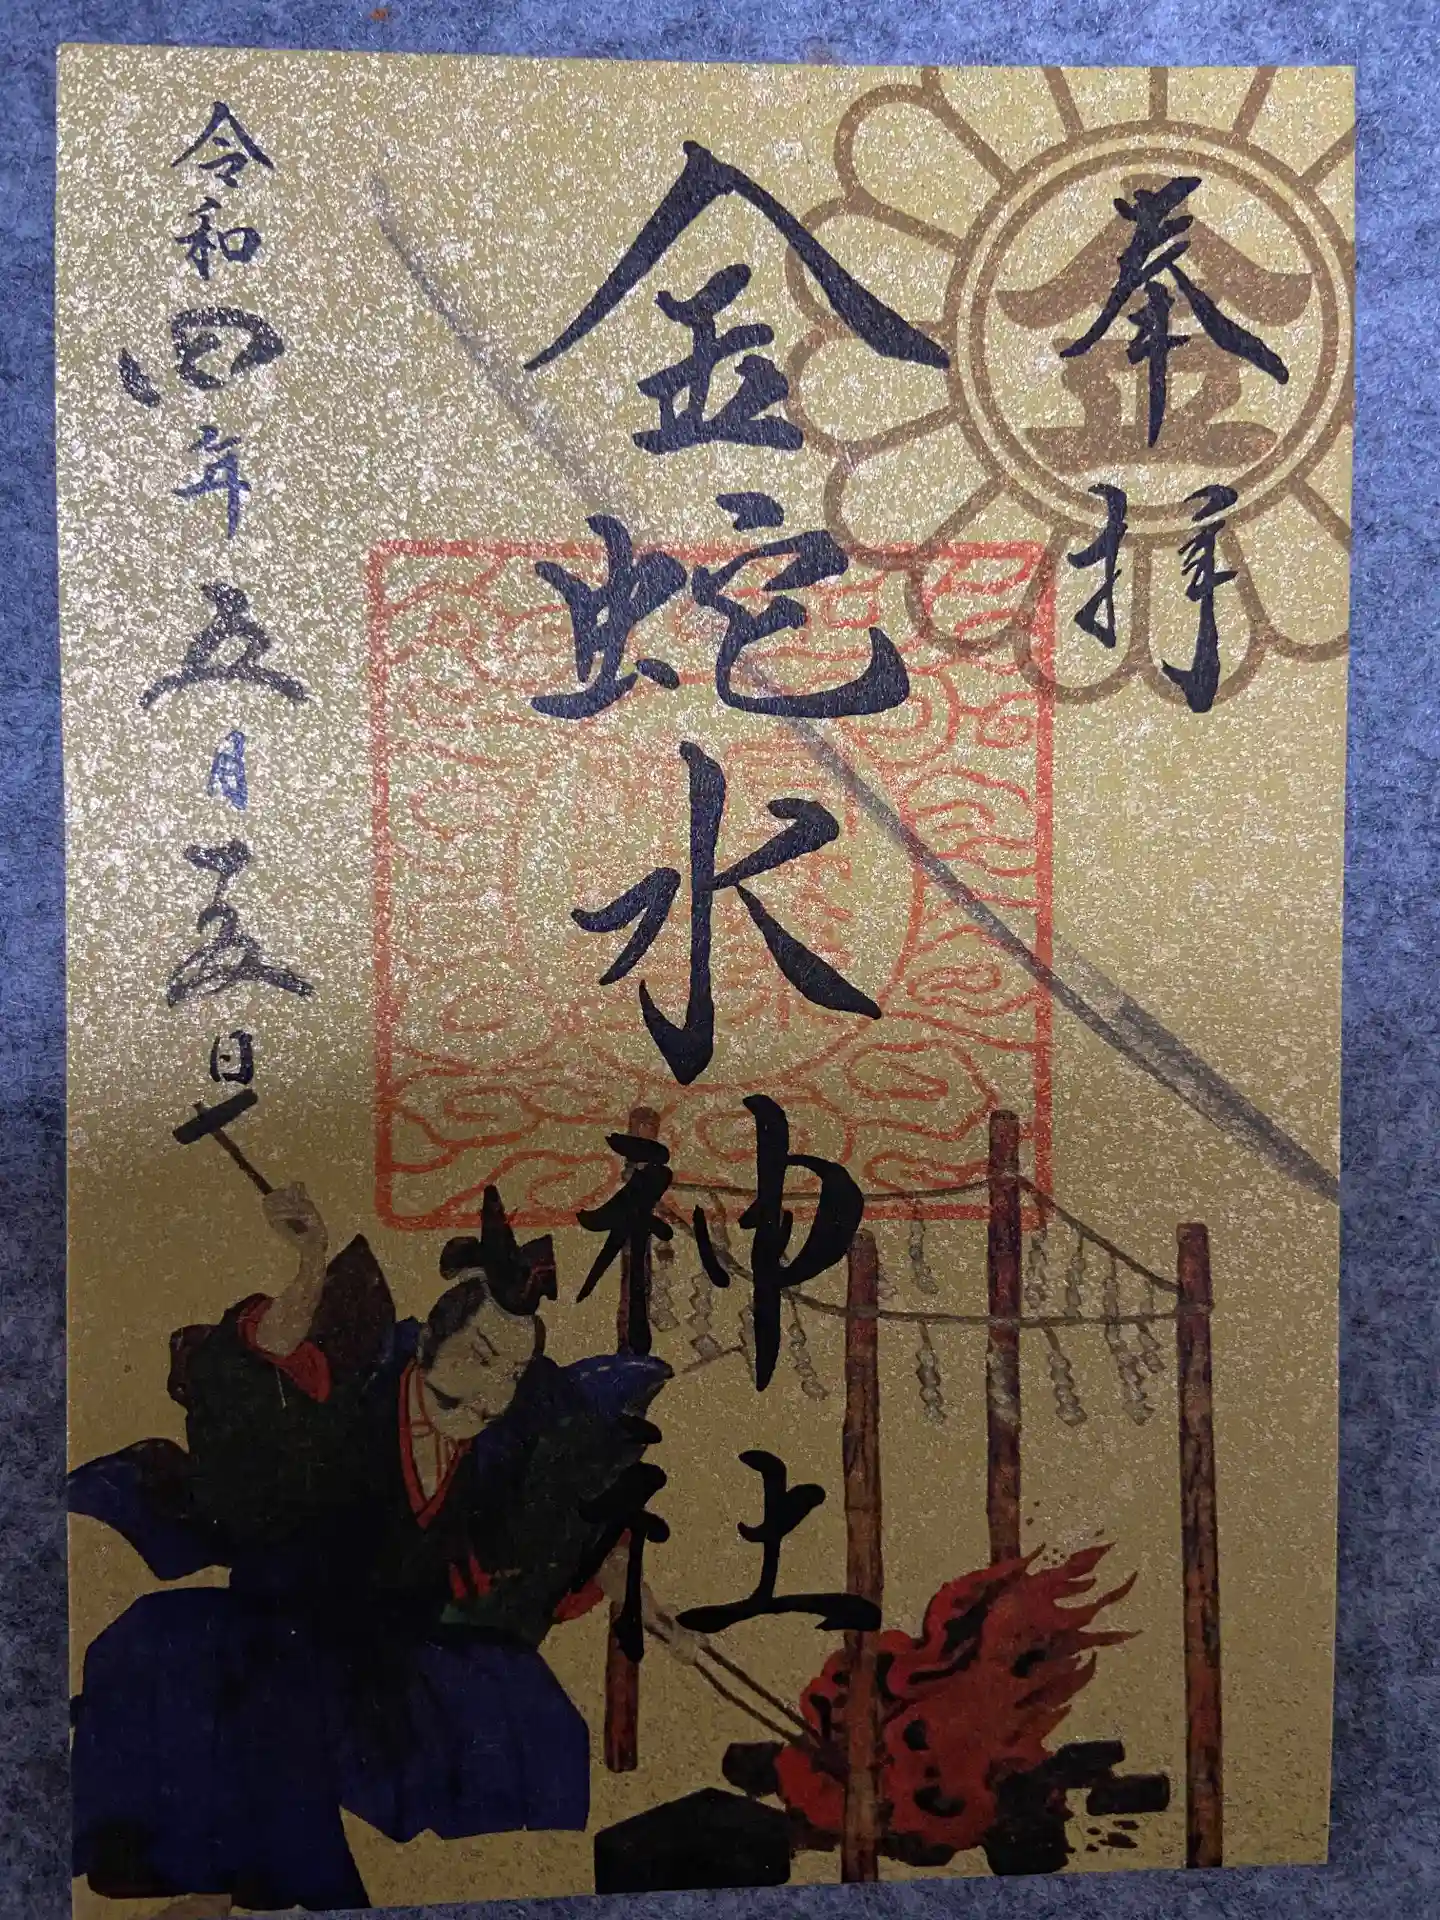 奉拝
金
金蛇水神社
令和四年五月十五日